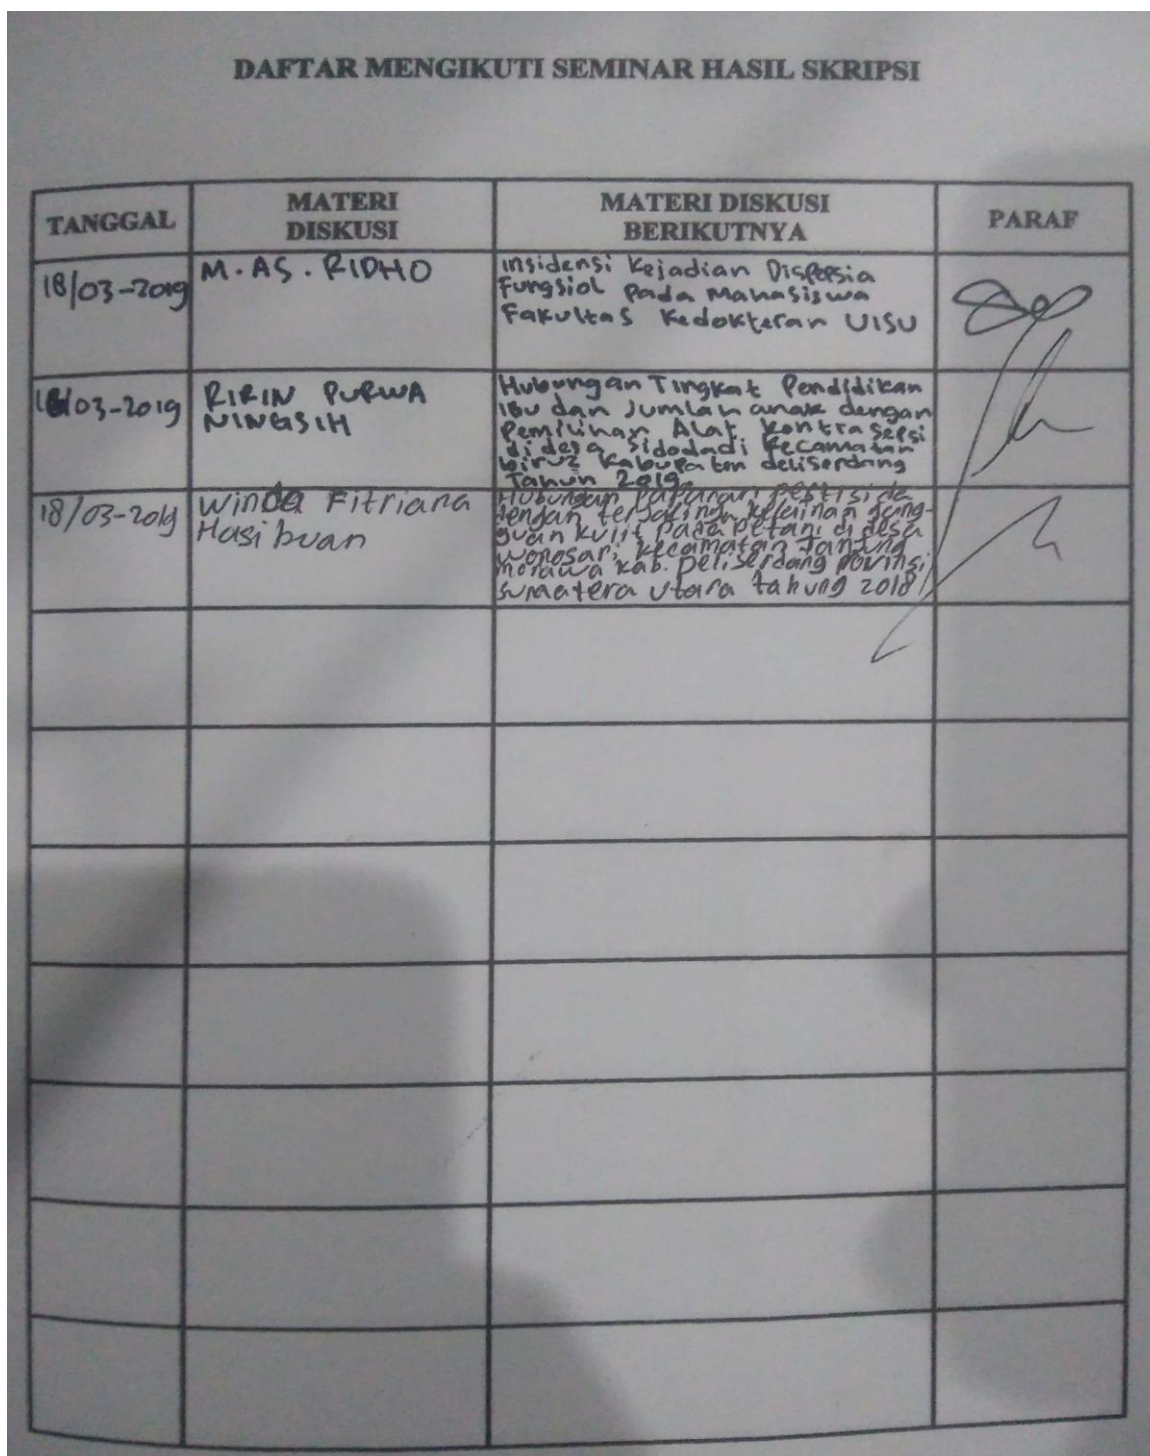 DAFTAR MENGIKUTI SEMINAR HASIL SKRIPSI
TANGGAL
MATERI
DISKUSI
MATERI DISKUSI
BERIKUTNYA
PARAF
18/03-2019
M. AS. RIDHO
insidensi Kejadian Dispepsia
Fungsiol Pada Mahasiswa
Fakultas Kedokteran UISU
18/03-2019
RIRIN PURWA
NINGSIH
Hubungan Tingkat Pendidikan
ibu dan Jumlah anak dengan
Pemilihan Alat kontrasepsi
di desa Sidodadi Kecamatan
biru2 Kabupaten deliserdang
Tahun 2019
18/03-2019
Winda Fitriana
Hasibuan
Hubungan paparan pestisida
dengan terjadinya kelainan gang-
guan kulit pada petani di desa
wonosari kecamatan Tanjung
morawa kab. deliserdang Provinsi
sumatera utara tahung 2018